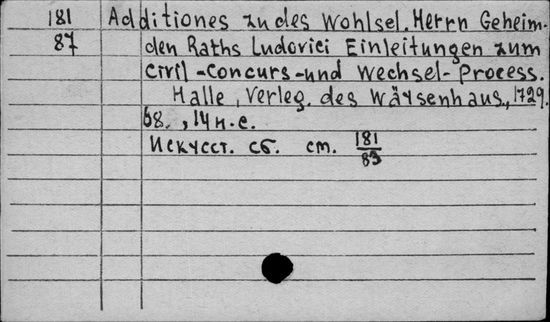 181 Additiones zu des Wohlsel. Herrn Geheim-
87 den Raths Ludovici Einleitungen zum
Civil-Concurs-und Wechsel-Process.
Halle, Verleg. des Wäysenhaus., 1729.
68., 14 н.с.
Искусст. сб. ст. 181
83